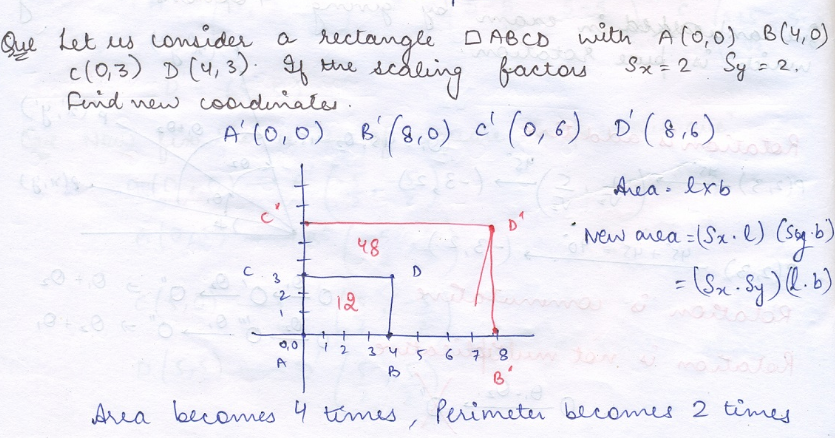 Que Let us consider a rectangle □ABCD with A(0,0) B(4,0)
C(0,3) D(4,3). If the scaling factors Sx=2 Sy=2.
Find new coordinates.
A'(0,0) B'(8,0) C'(0,6) D'(8,6)
Area = l×b
New area = (Sx·l) (Sy·b)
= (Sx·Sy)(l·b)
C' D'
48
C 3 D
2 12
1
0,0 1 2 3 4 5 6 7 8
A B B'
Area becomes 4 times, Perimeter becomes 2 times